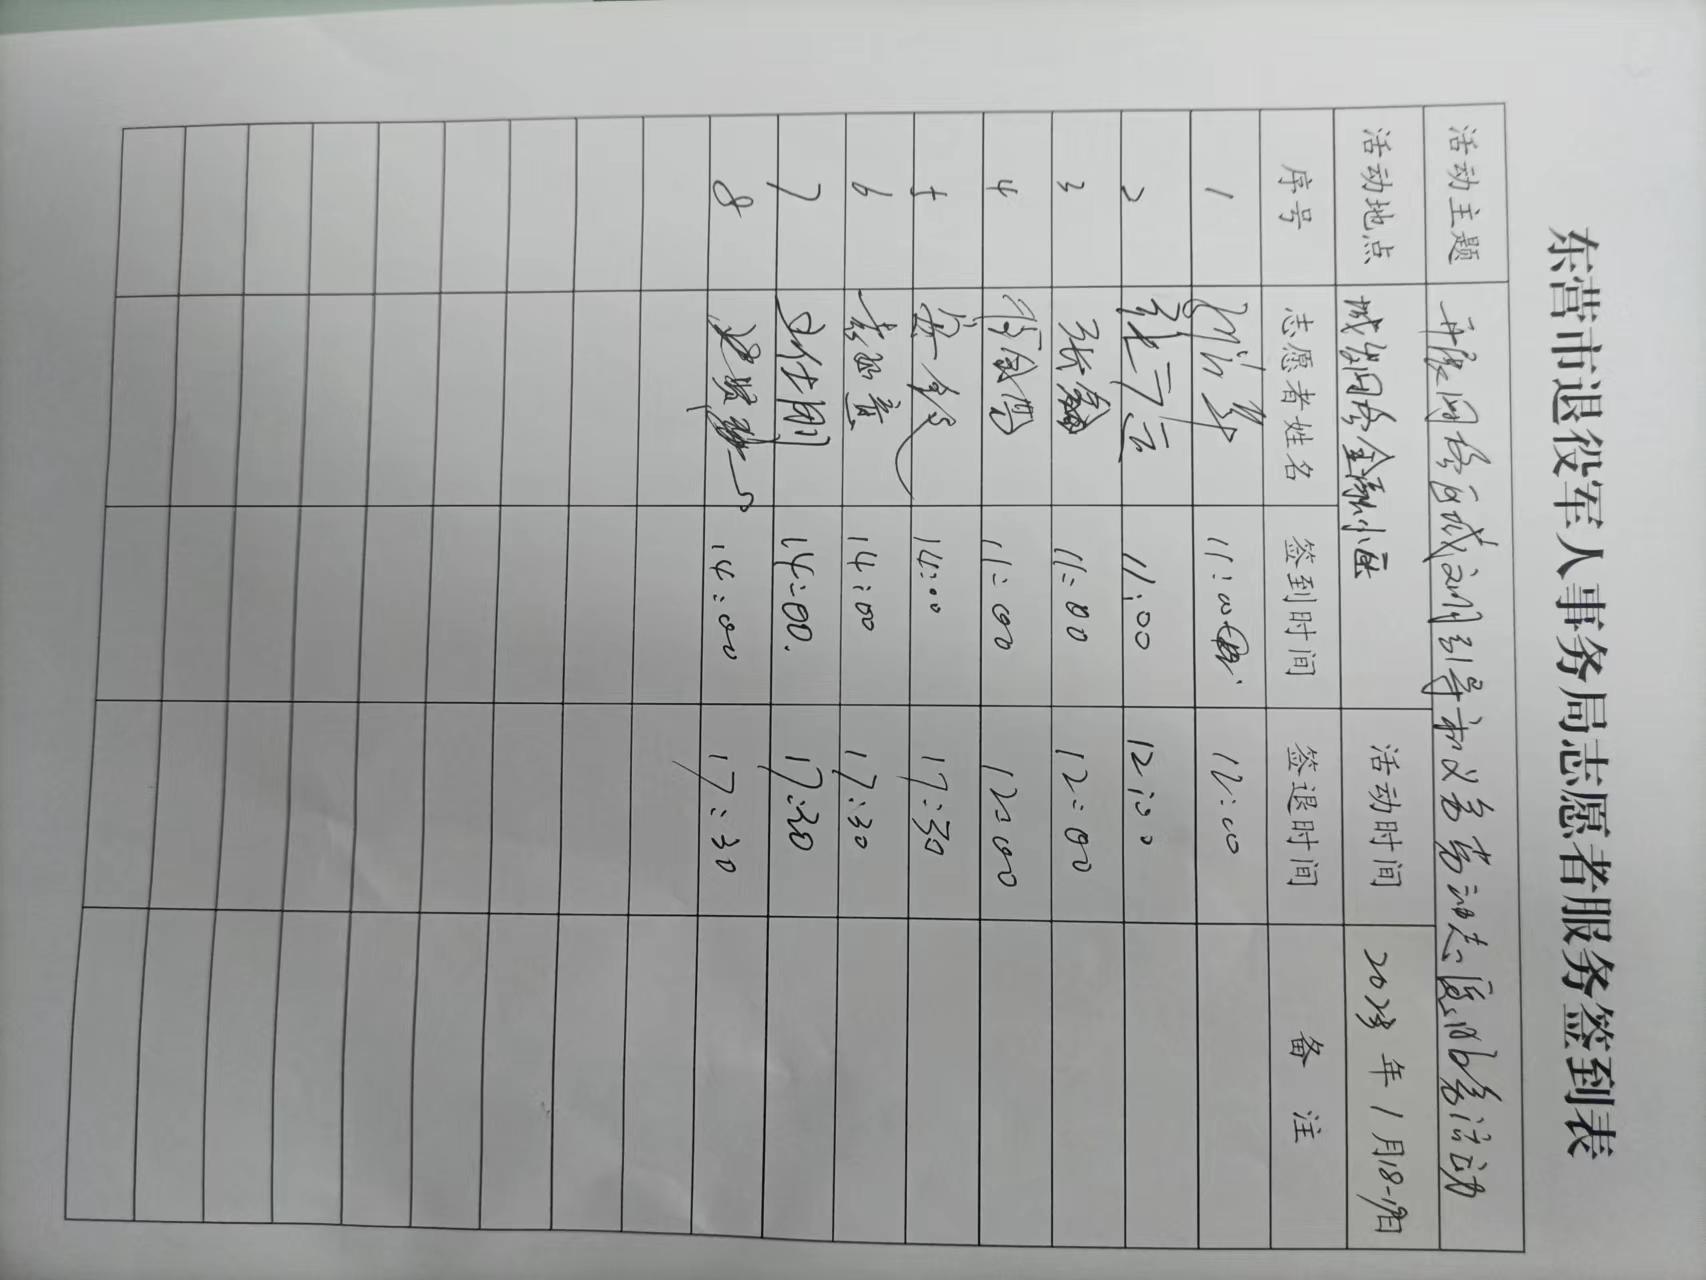 东营市退役军人事务局志愿者服务签到表
活动主题 开展网格区域文明引导和义务劳动志愿服务活动
活动地点 城发网格金湖小区 活动时间 2023年1月18-19日
序号 志愿者姓名 签到时间 签退时间 备注
1 11:00 12:00
2 张元云 11:00 12:00
3 张鑫 11:00 12:00
4 11:00 12:00
5 14:00 17:30
6 14:00 17:30
7 14:00. 17:30
8 14:00 17:30